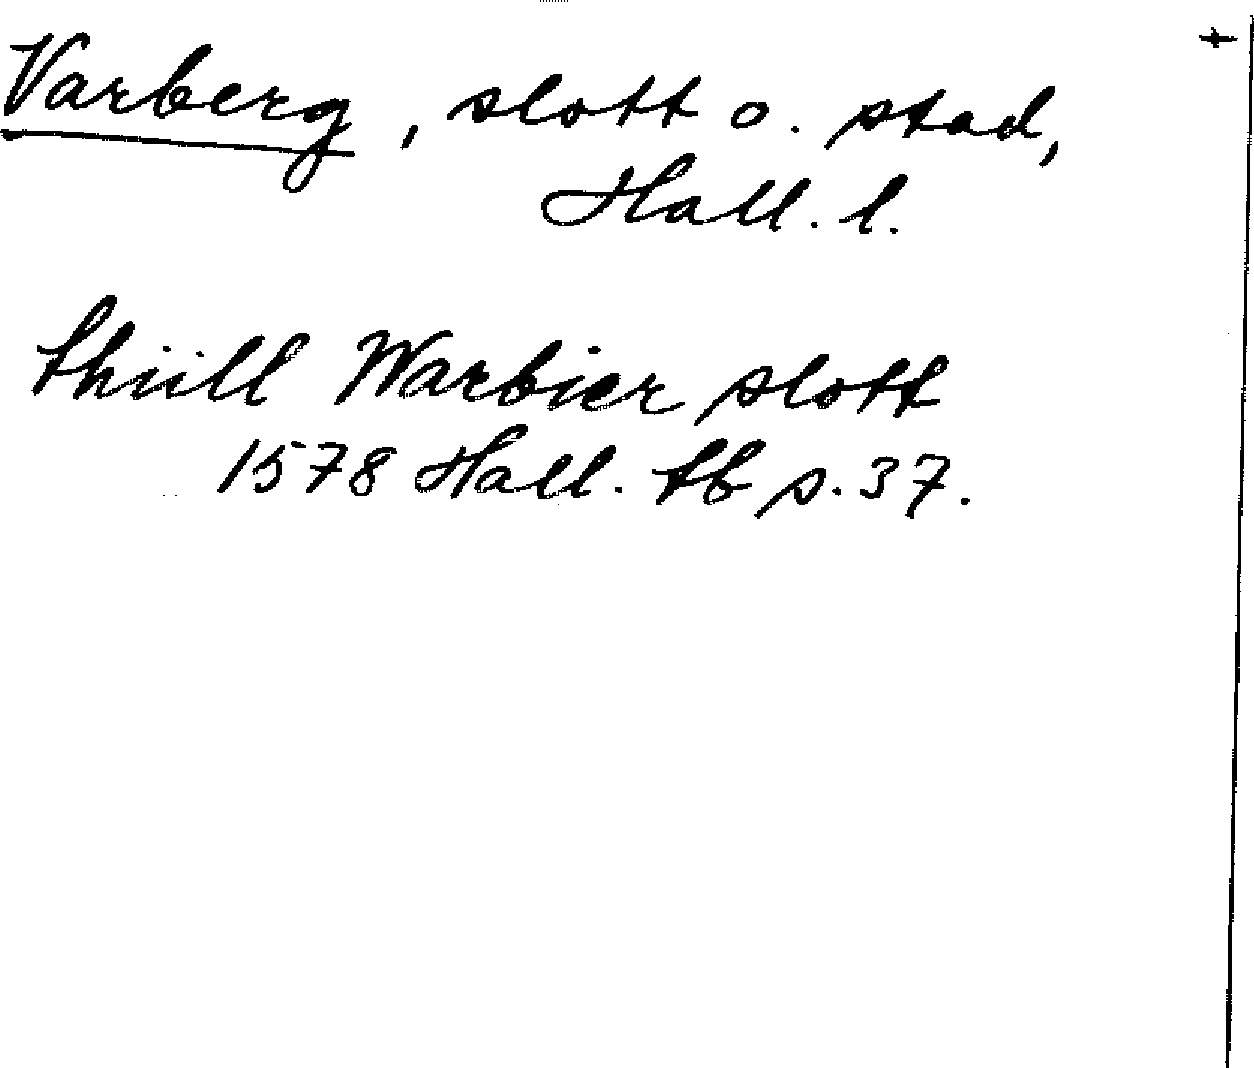 Varberg, slott o. stad,
Hall. l.
thiill Warbier slott
1578 Hall. tb s. 37.